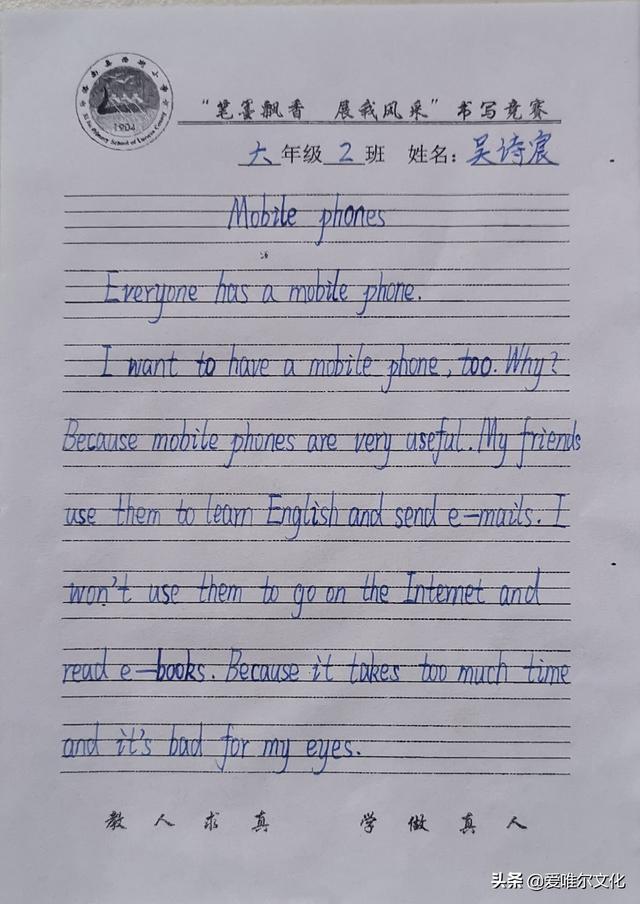 "笔墨飘香 展我风采"书写竞赛
1904
六年级2班 姓名:吴诗宸
Mobile phones
Everyone has a mobile phone.
I want to have a mobile phone, too. Why?
Because mobile phones are very useful. My friends
use them to learn English and send e-mails. I
won't use them to go on the Internet and
read e-books. Because it takes too much time
and it's bad for my eyes.
教人求真 学做真人
头条 @爱唯尔文化